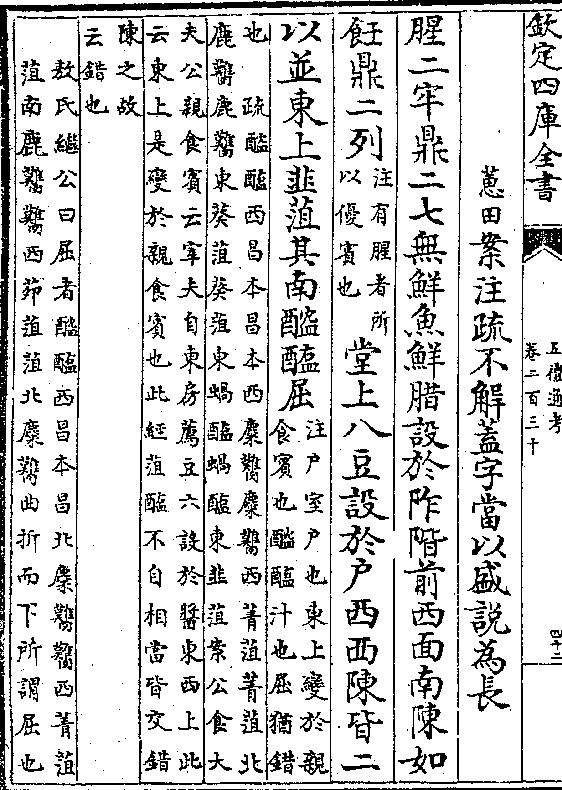 欽定四庫全書
五禮通考
卷二百三十
四十二
蕙田案注疏不解蓋字當以盛說為長
腥二牢鼎二七無鮮魚鮮腊設於阼階前西面南陳如
飪鼎二列
注有腥者所
以優賓也
堂上八豆設於戶西西陳皆二
以並東上韭菹其南醓醢屈
注戶室戶也東上變於親
食賓也醓醢汁也屈猶錯
也　疏醓醢西昌本昌本西麋臡麋臡西菁菹菁菹北
鹿臡鹿臡東葵菹葵菹東蝸醢蝸醢東韭菹案公食大
夫公親食賓云宰夫自東房薦豆六設於醬東西上此
云東上是變於親食賓也此經菹醢不自相當皆交錯
陳之故
云錯也
敖氏繼公曰屈者醓醢西昌本昌北麋臡臡西菁菹
菹南鹿臡臡西茆菹菹北麋臡曲折而下所謂屈也